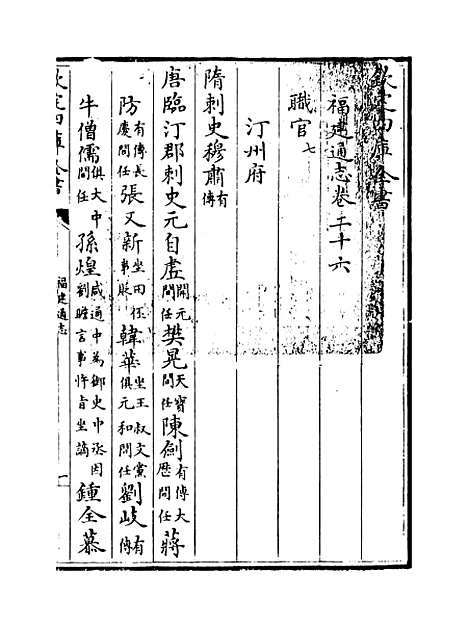 欽定四庫全書
福建通志卷二十六
職官七
汀州府
隋刺史穆肅有傳
唐臨汀郡刺史元自虛開元間任樊晃天寶間任陳劍有傳大歷間任蔣
防有傳長慶間任張又新坐田伾事貶韓華坐王叔文黨俱元和間任劉岐有傳
牛僧儒俱大中間任孫煌咸通中為御史中丞因劉瞻言事忤旨坐謫鍾全慕
欽定四庫全書
福建通志
一